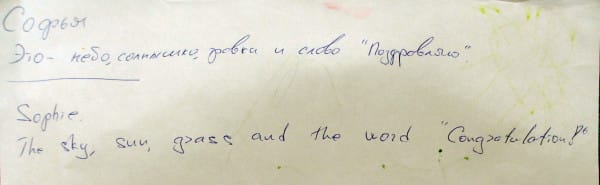 Софья
Это - небо, солнышко, травка и слово "Поздравляю".
Sophie.
The sky, sun, grass and the word "Congratulation!"